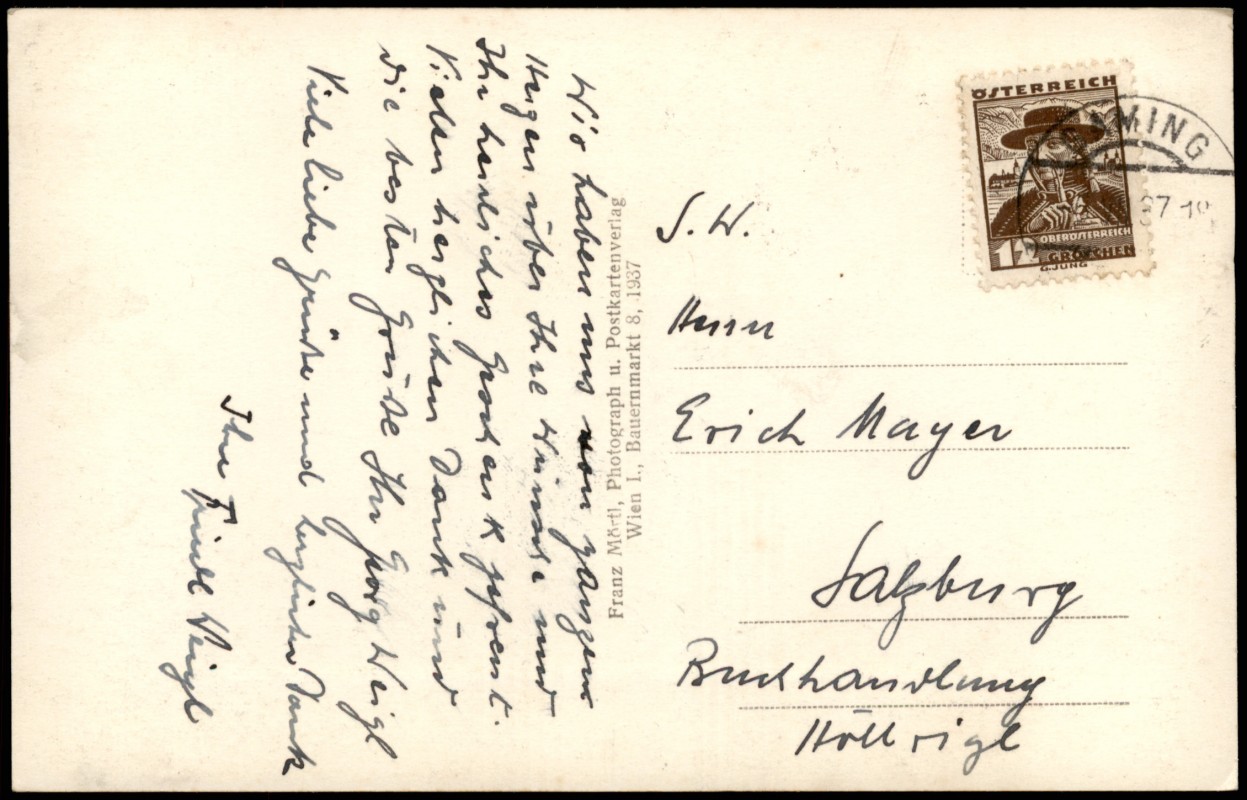 Wir haben uns von ganzem
Herzen über Ihre Wünsche und
Ihr herrliches Geschenk gefreut.
Vielen herzlichen Dank und
die besten Grüße Ihr Georg Weigl
Viele liebe Grüße und herzlichen Dank
Ihre
Weigl
Franz Mörtl, Photograph u. Postkartenverlag
Wien I., Bauernmarkt 8, 1937
ÖSTERREICH
OBERÖSTERREICH
GROSCHEN
G.JUNG
MING
37
S. W.
Herrn
Erich Mayer
Salzburg
Buchhandlung
Höllrigl